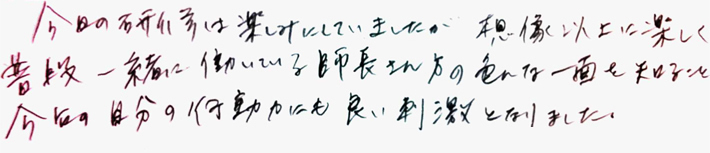 今日の研修は楽しみにしていましたが 想像以上に楽しく
普段 一緒に働いている師長さん方の色んな一面を知ること
今后の自分の行動力にも良い刺激となりました。